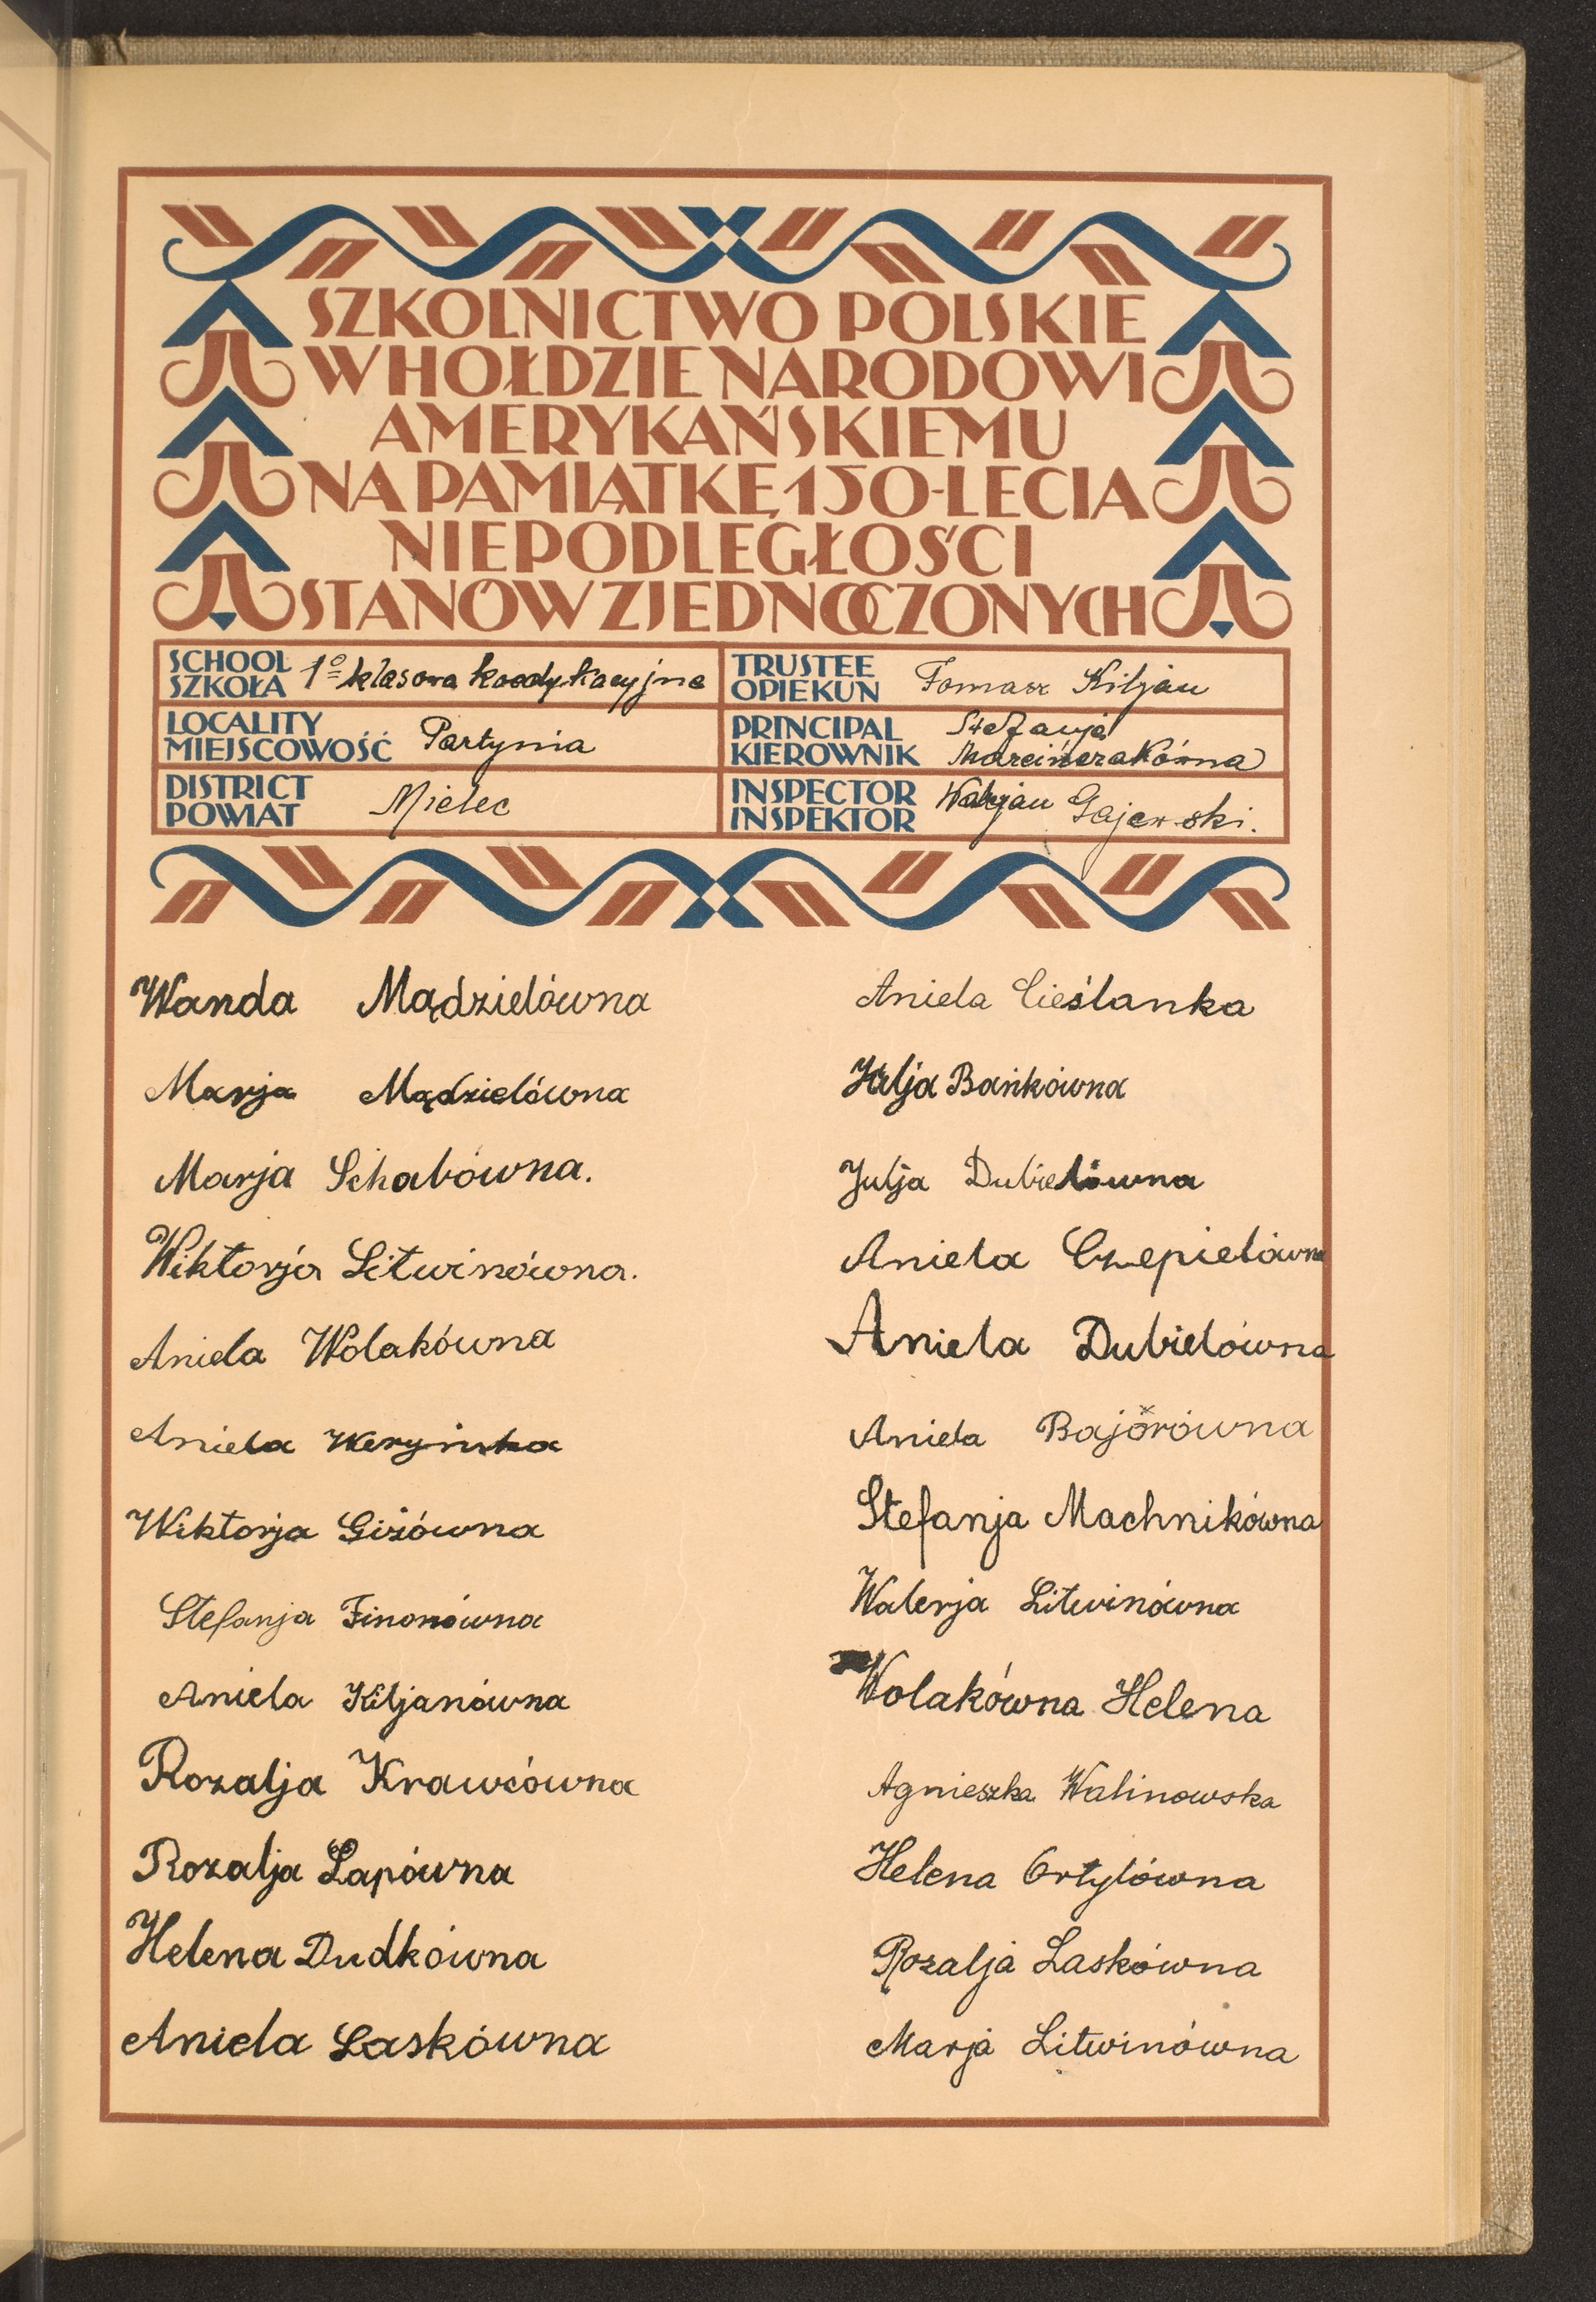 SZKOLNICTWO POLSKIE
W HOŁDZIE NARODOWI
AMERYKAŃSKIEMU
NA PAMIĄTKĘ 150-LECIA
NIEPODLEGŁOŚCI
STANÓW ZJEDNOCZONYCH
SCHOOL
SZKOŁA 1º klasowa koedukacyjna
TRUSTEE
OPIEKUN Tomasz Kiljan
LOCALITY
MIEJSCOWOŚĆ Partynia
PRINCIPAL Stefanja
KIEROWNIK Marcińczakówna
DISTRICT
POWIAT Mielec
INSPECTOR
INSPEKTOR Gajewski.
Wanda Mądzielówna
Marja Mądzielówna
Marja Schabówna.
Wiktorja Litwinówna.
Aniela Wolakówna
Aniela Weryńska
Wiktorja Giżówna
Stefanja Finonówna
Aniela Kiljanówna
Rozalja Krawcówna
Rozalja Łapówna
Helena Dudkówna
Aniela Laskówna
Aniela Cieślanka
Julja Bańkówna
Julja Dubielówna
Aniela Czepielówna
Aniela Dubielówna
Aniela Bajorówna
Stefanja Machnikówna
Walerja Litwinówna
Wolakówna Helena
Agnieszka Walinowska
Helena Ortylówna
Rozalja Laskówna
Marja Litwinówna